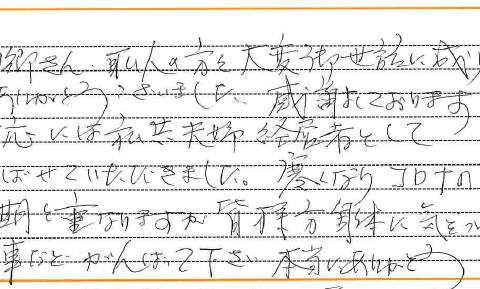 郷さん、職人の方も大変御世話に成り
ありがとうございました。感謝しております
応には私共夫婦 経営者として
ばせていただきました。寒くなり コロナの
期と重なりますが皆様方身体に気をつ
事など がんばって下さい 本当にありがとう